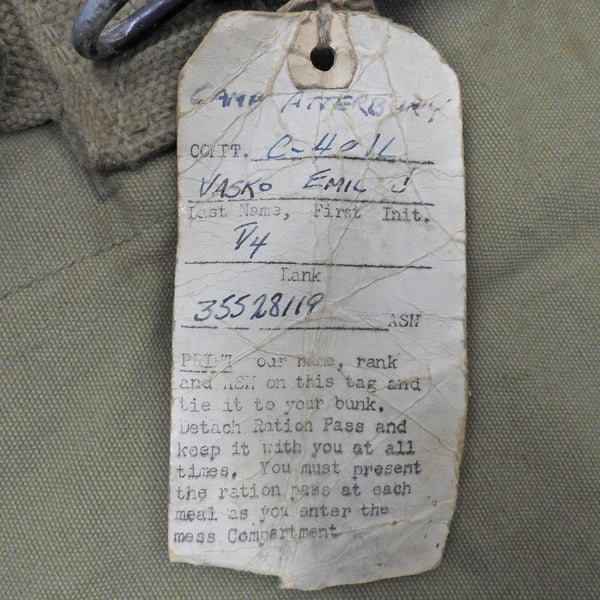 CAMP ATTERBURY
COMPT. C-4011
VASKO EMIL J
Last Name, First Init.
T/4
Rank
35528119 ASN
PRINT our name, rank
and ASN on this tag and
tie it to your bunk.
Detach Ration Pass and
keep it with you at all
times. You must present
the ration pass at each
meal as you enter the
mess Compartment